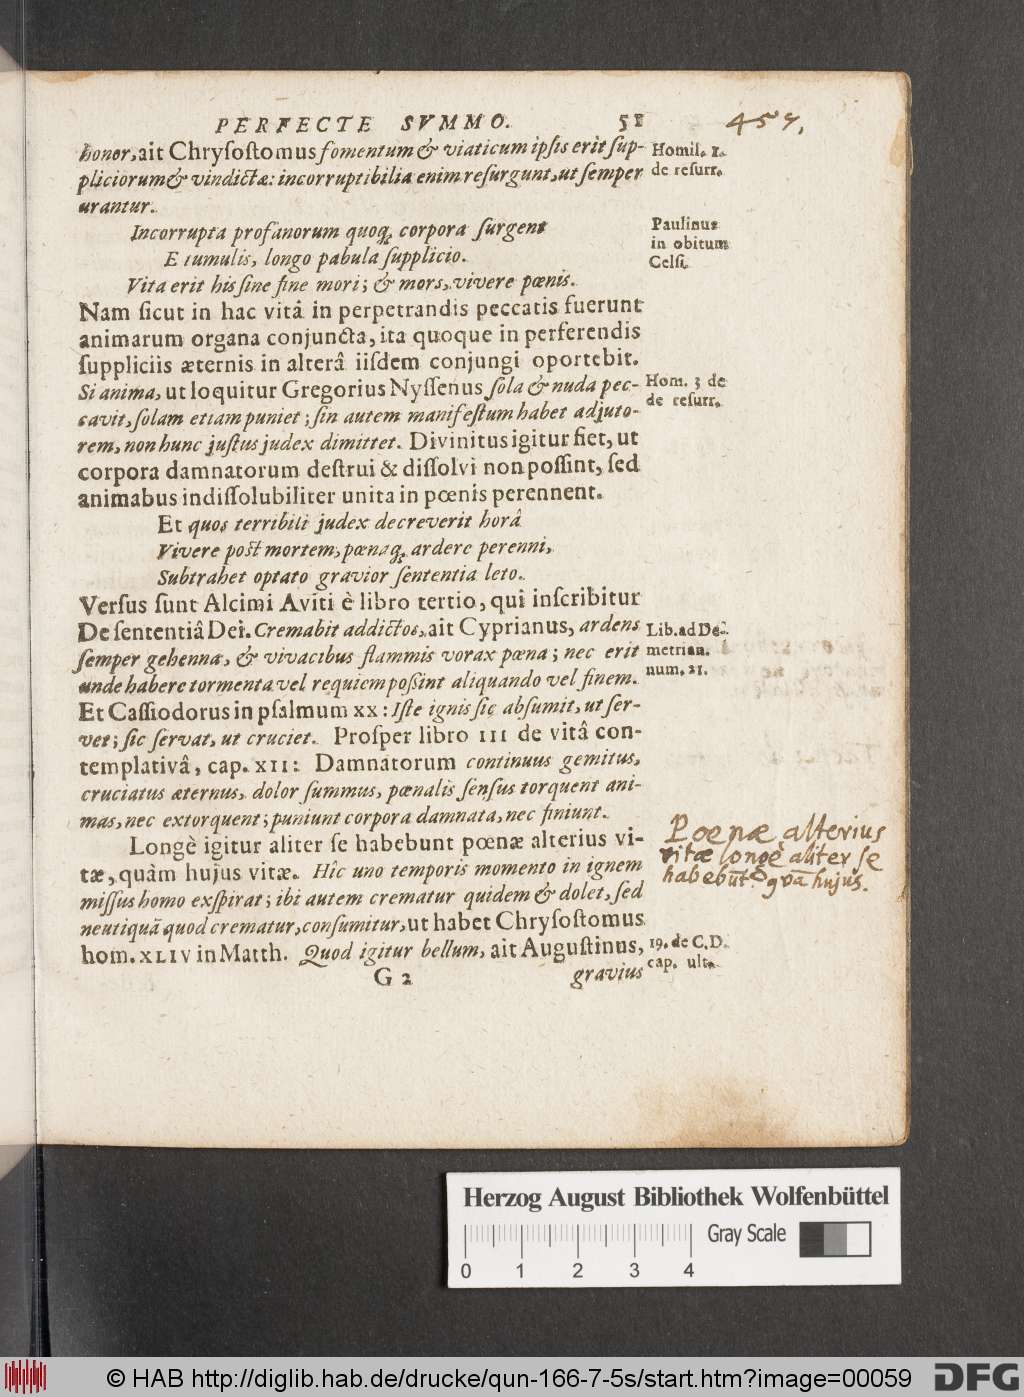 PERFECTE SVMMO. 51
457,
honor, ait Chryſoſtomus fomentum & viaticum ipſis erit ſup-
pliciorum & vindictæ: incorruptibilia enim reſurgunt, ut ſemper
urantur.
Homil. 1.
de reſurr.
Incorrupta profanorum quoq; corpora ſurgent
E tumulis, longo pabula ſupplicio.
Vita erit his ſine fine mori; & mors, vivere pœnis.
Paulinus
in obitum
Celſi.
Nam ſicut in hac vitâ in perpetrandis peccatis fuerunt
animarum organa conjuncta, ita quoque in perferendis
ſuppliciis æternis in alterâ iiſdem conjungi oportebit.
Si anima, ut loquitur Gregorius Nyſſenus ſola & nuda pec-
cavit, ſolam etiam puniet; ſin autem manifeſtum habet adjuto-
rem, non hunc juſtus judex dimittet. Divinitus igitur fiet, ut
corpora damnatorum deſtrui & diſſolvi non poſſint, ſed
animabus indiſſolubiliter unita in pœnis perennent.
Hom. 3 de
de reſurr.
Et quos terribili judex decreverit horâ
Vivere poſt mortem, pœnaq; ardere perenni,
Subtrahet optato gravior ſententia leto.
Verſus ſunt Alcimi Aviti è libro tertio, qui inſcribitur
De ſententiâ Dei. Cremabit addictos, ait Cyprianus, ardens
ſemper gehenna, & vivacibus flammis vorax pœna; nec erit
unde habere tormenta vel requiem poßint aliquando vel finem.
Et Caſſiodorus in pſalmum XX: Iſte ignis ſic abſumit, ut ſer-
vet; ſic ſervat, ut cruciet. Proſper libro III de vitâ con-
templativâ, cap. XII: Damnatorum continuus gemitus,
cruciatus æternus, dolor ſummus, pœnalis ſenſus torquent ani-
mas, nec extorquent; puniunt corpora damnata, nec finiunt.
Lib. ad De-
metrian.
num. 21.
Longè igitur aliter ſe habebunt pœnæ alterius vi-
tæ, quàm hujus vitæ. Hîc uno temporis momento in ignem
miſſus homo exſpirat; ibi autem crematur quidem & dolet, ſed
neutiquā quod crematur, conſumitur, ut habet Chryſoſtomus
hom. XLIV in Matth. Quod igitur bellum, ait Auguſtinus,
Poenæ alterius
vitæ longè aliter ſe
habebūt qvā hujus.
19. de C.D.
cap. ult.
G 2
gravius
Herzog August Bibliothek Wolfenbüttel
Gray Scale
0 1 2 3 4
© HAB http://diglib.hab.de/drucke/qun-166-7-5s/start.htm?image=00059
DFG